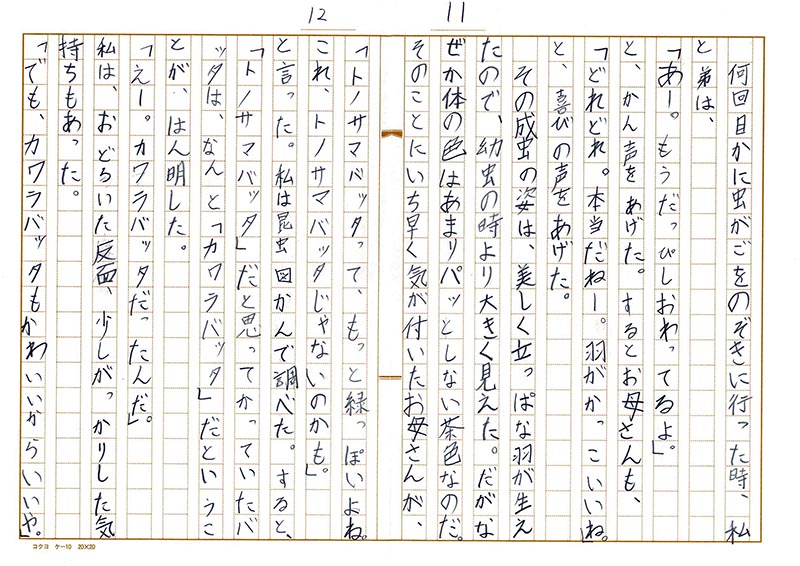 11
何回目かに虫かごをのぞきに行った時、私
と弟は、
「あー。もうだっぴしおわってるよ」
と、かん声をあげた。するとお母さんも、
「どれどれ。本当だねー。羽がかっこいいね。」
と、喜びの声をあげた。
その成虫の姿は、美しく立っぱな羽が生え
たので、幼虫の時より大きく見えた。だがな
ぜか体の色はあまりパッとしない茶色なのだ。
そのことにいち早く気が付いたお母さんが、
12
「トノサマバッタって、もっと緑っぽいよね。
これ、トノサマバッタじゃないのかも。」
と言った。私は昆虫図かんで調べた。すると、
「トノサマバッタ」だと思ってかっていたバ
ッタは、なんと「カワラバッタ」だというこ
とが、はん明した。
「えー。カワラバッタだったんだ。」
私は、おどろいた反面、少しがっかりした気
持ちもあった。
「でも、カワラバッタもかわいいからいいや。」
コクヨ ケー10 20×20